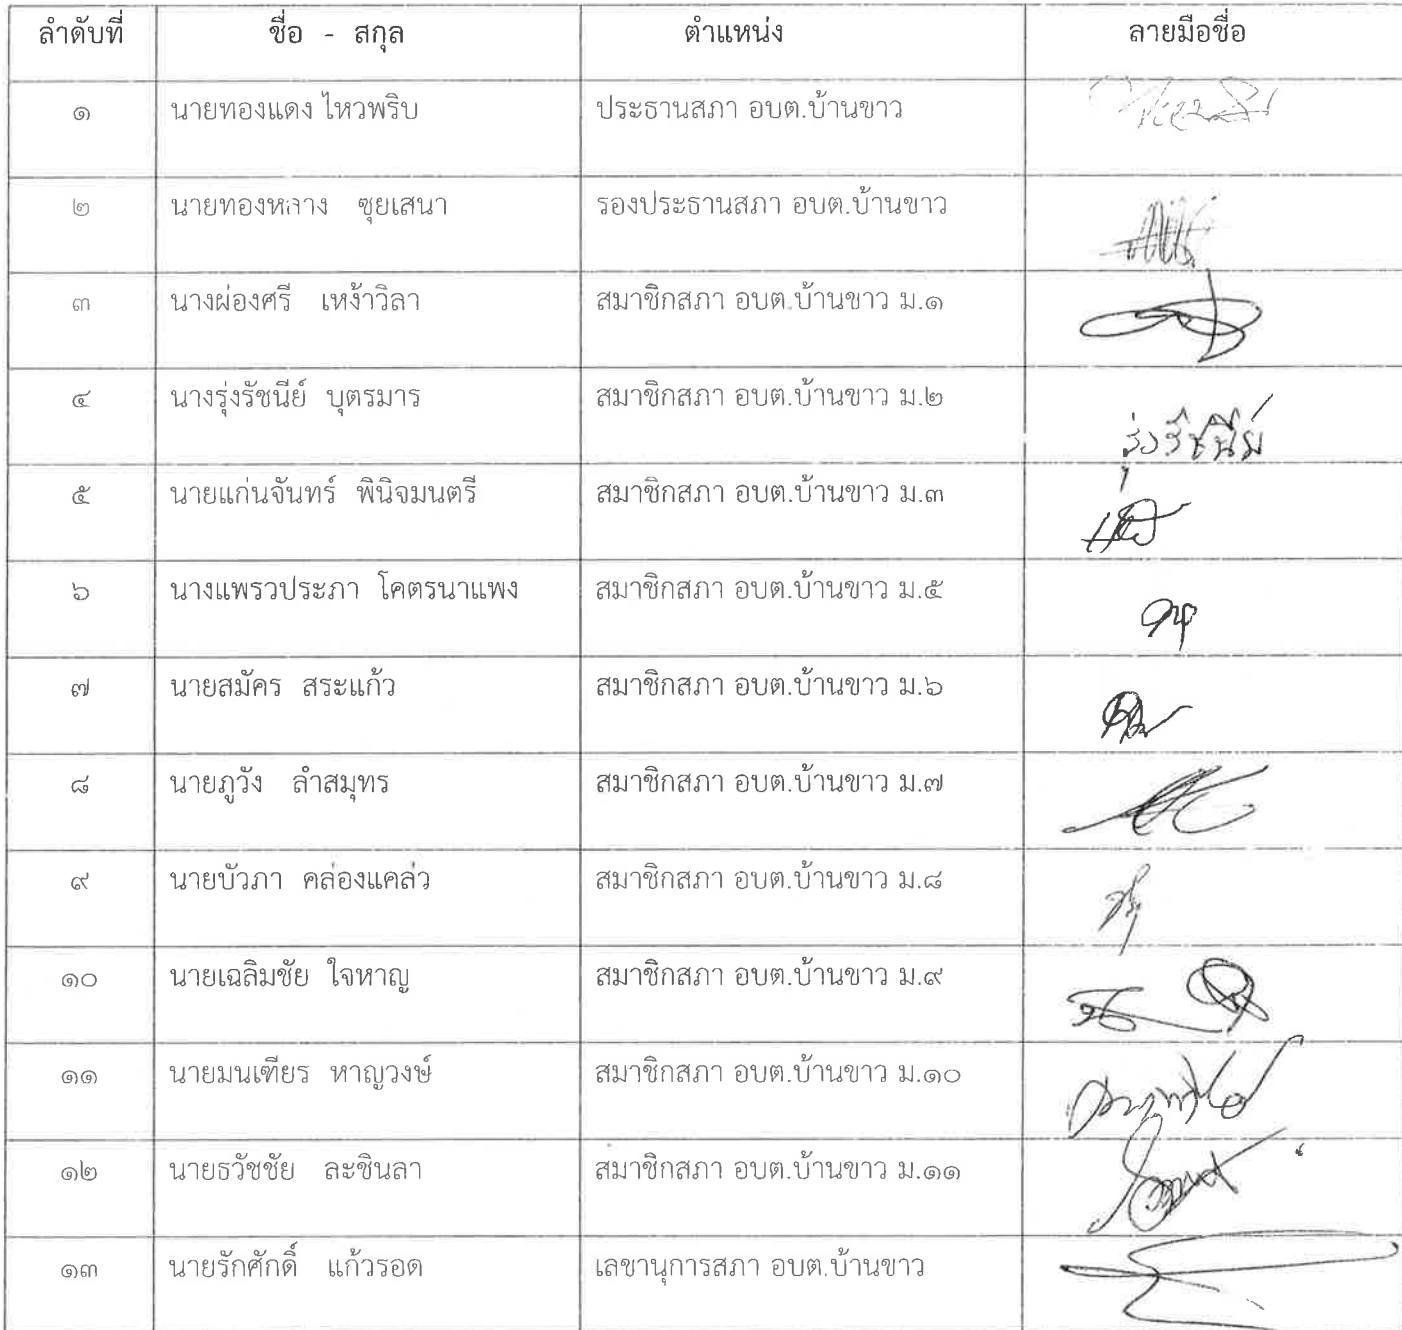 ลำดับที่ ชื่อ - สกุล ตำแหน่ง ลายมือชื่อ
๑ นายทองแดง ไหวพริบ ประธานสภา อบต.บ้านขาว
๒ นายทองหลาง ซุยเสนา รองประธานสภา อบต.บ้านขาว
๓ นางผ่องศรี เหง้าวิลา สมาชิกสภา อบต.บ้านขาว ม.๑
๔ นางรุ่งรัชนีย์ บุตรมาร สมาชิกสภา อบต.บ้านขาว ม.๒ รุ่งรัชนีย์
๕ นายแก่นจันทร์ พินิจมนตรี สมาชิกสภา อบต.บ้านขาว ม.๓
๖ นางแพรวประภา โคตรนาแพง สมาชิกสภา อบต.บ้านขาว ม.๕
๗ นายสมัคร สระแก้ว สมาชิกสภา อบต.บ้านขาว ม.๖
๘ นายภูวัง ลำสมุทร สมาชิกสภา อบต.บ้านขาว ม.๗
๙ นายบัวภา คล่องแคล่ว สมาชิกสภา อบต.บ้านขาว ม.๘
๑๐ นายเฉลิมชัย ใจหาญ สมาชิกสภา อบต.บ้านขาว ม.๙
๑๑ นายมนเฑียร หาญวงษ์ สมาชิกสภา อบต.บ้านขาว ม.๑๐
๑๒ นายธวัชชัย ละชินลา สมาชิกสภา อบต.บ้านขาว ม.๑๑
๑๓ นายรักศักดิ์ แก้วรอด เลขานุการสภา อบต.บ้านขาว